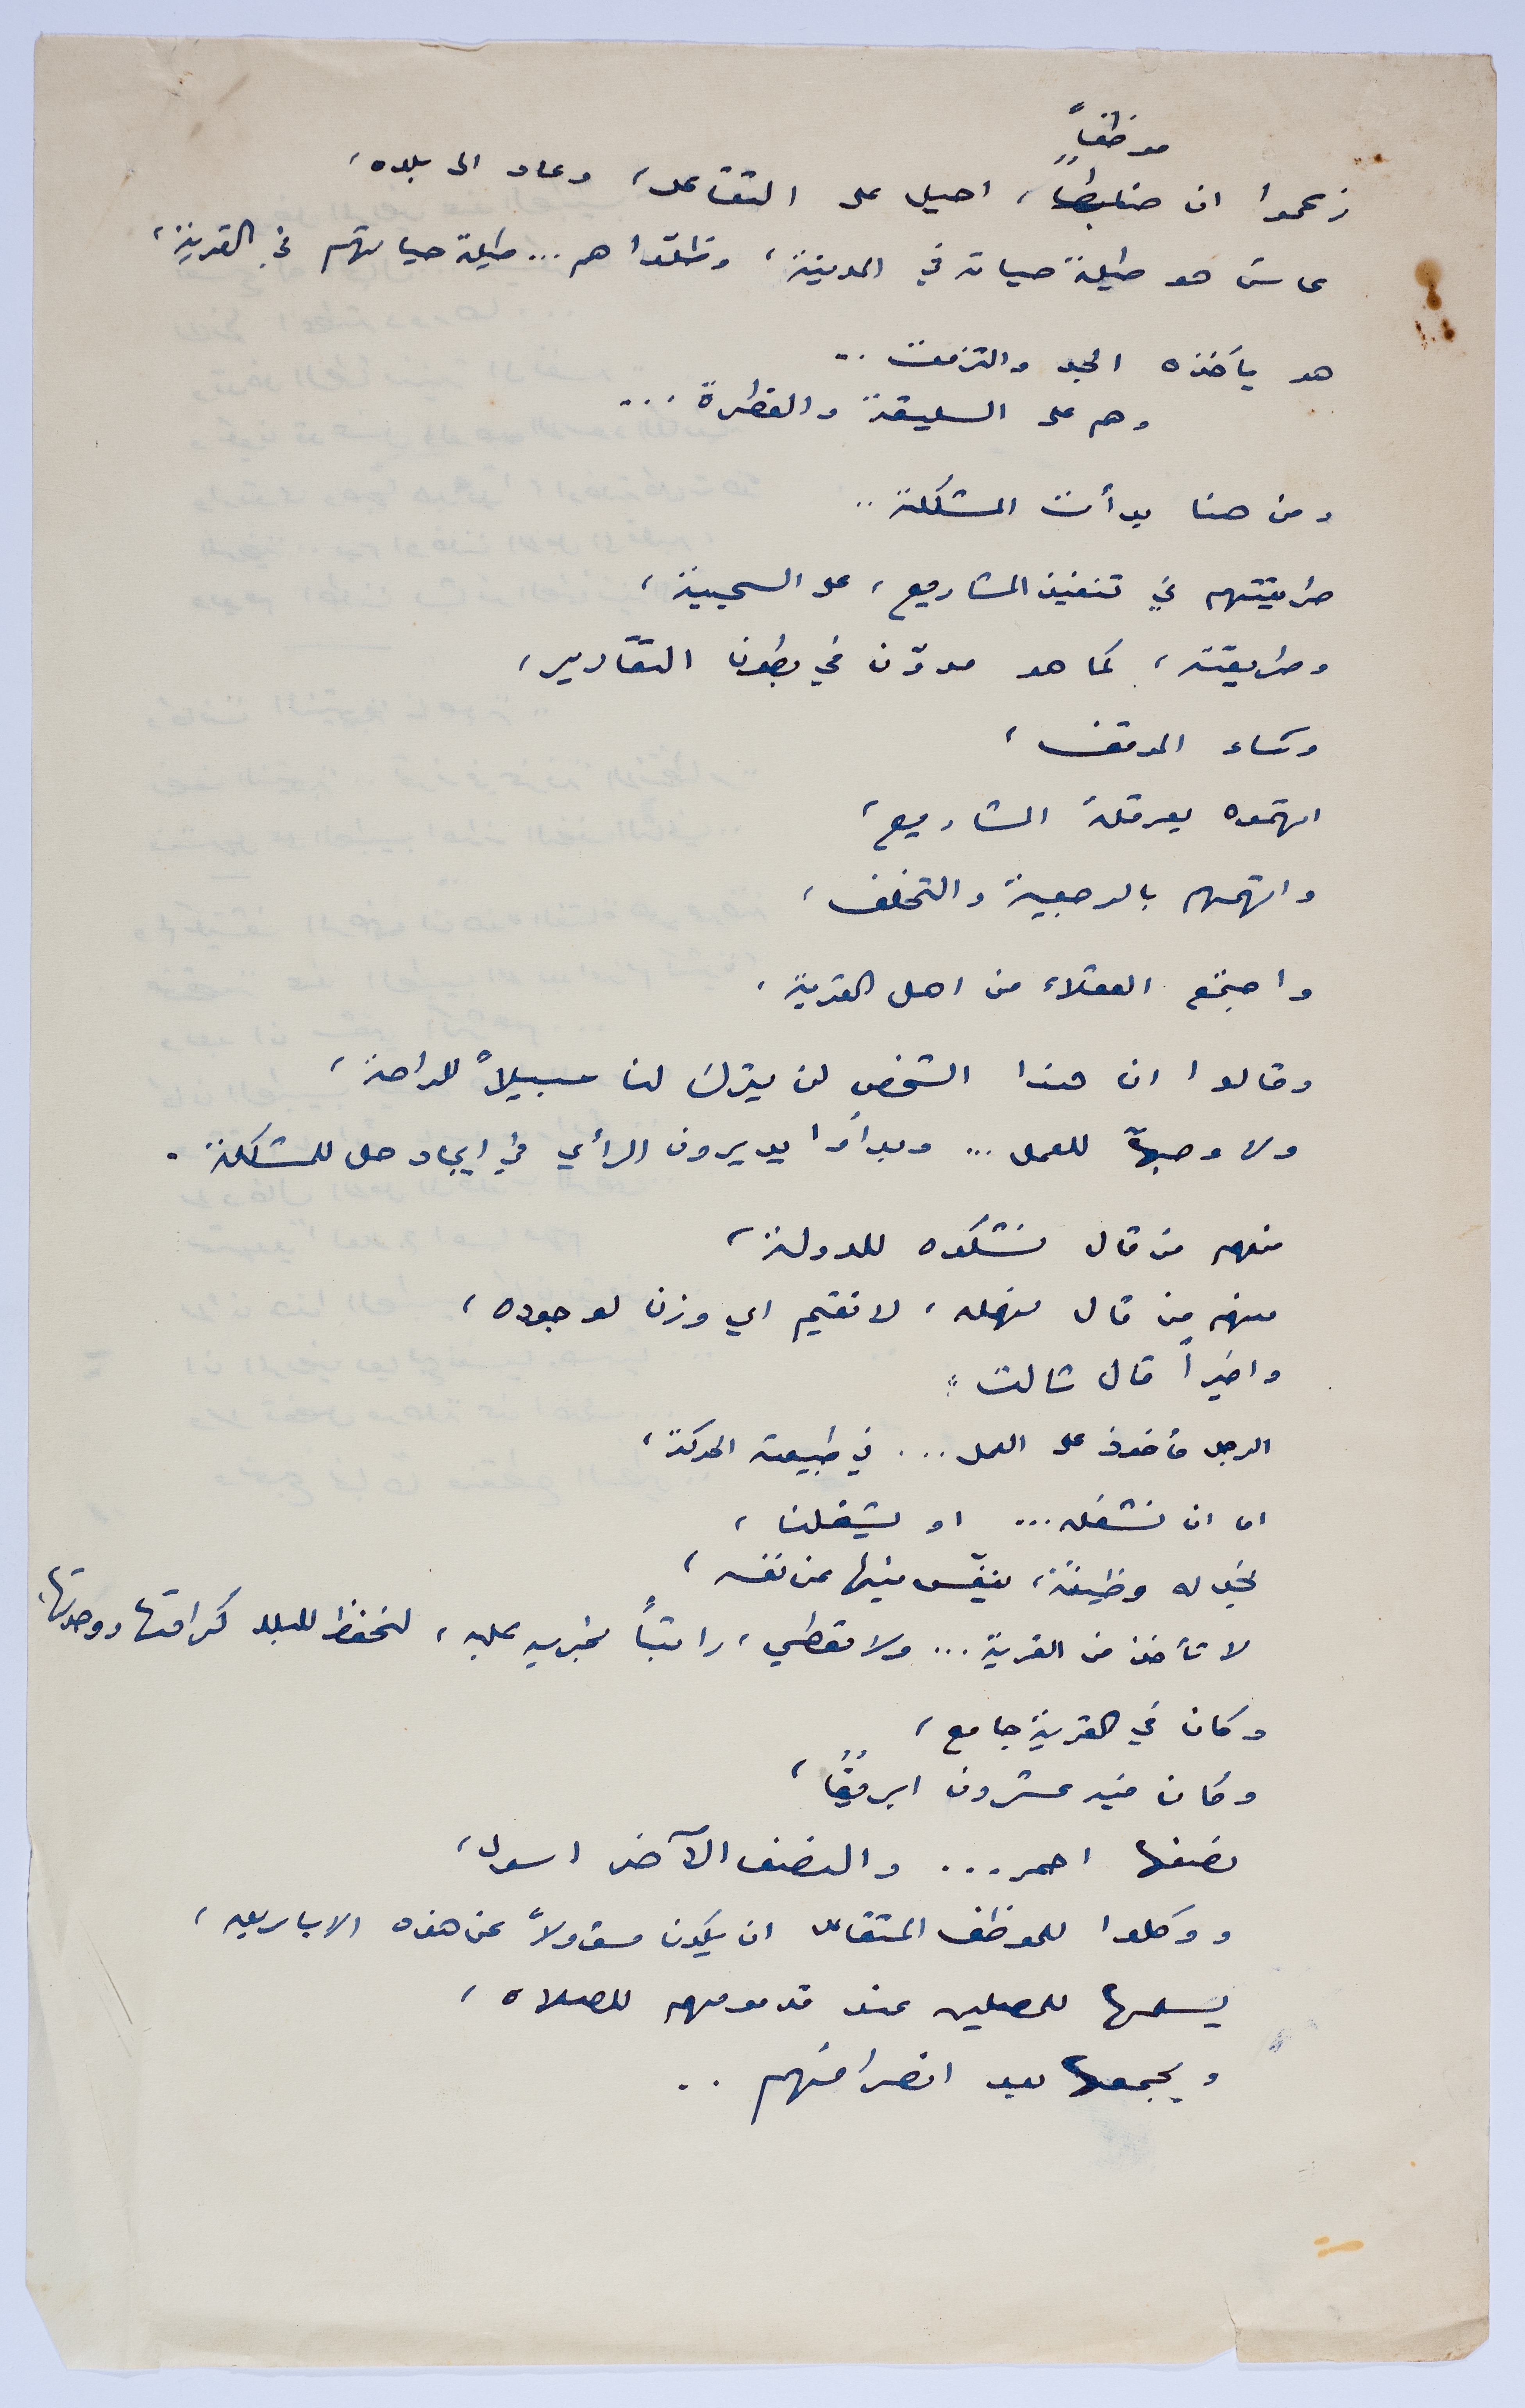 موظفاً
زعموا ان ضابطاً، احيل على التقاعد، وعاد الى بلده،
عاش هو طيلة حياته في المدينة، وظلوا هم... طيلة حياتهم في القرية،
هو يأخذه الجد والتزمت ..
وهم على السليقة والفطرة ...
ومن هنا بدأت المشكلة ..
طريقتهم في تنفيذ المشاريع، على السجية،
وطريقته، كما هو مدوّن في بطون التقارير،
وساء الموقف،
اتهموه بعرقلة المشاريع،
واتهمهم بالرجعية والتخلف،
واجتمع العقلاء من اهل القرية،
وقالوا ان هذا الشخص لن يترك لنا سبيلاً للراحة،
ولا وجهاً للعمل ... وبدأوا يديرون الرأي في ايجاد حل للمشكلة .
منهم من قال نشكوه للدولة،
منهم من قال نهمله، لا نقيم اي وزن لوجوده،
واخيراً قال ثالث :
الرجل مأخوذ على العمل ... في طبيعته الحركة،
اما ان نشغله ... او يشغلنا،
نجد له وظيفة، ينفّس فيها عن نفسه،
لا تأخذ من القرية ... ولا تعطي، راتباً نجريه عليه، لنحفظ للبلد كرامتها ووحدتها،
وكان في القرية جامع،
وكان فيه عشرون ابريقاً،
نصفها احمر ... والنصف الآخر اسود،
ووكلوا للموظف المتقاعد ان يكون مسؤولاً عن هذه الاباريق،
يسلمها للمصلين عند قدومهم للصلاه،
ويجمعها بعد انصرافهم ..